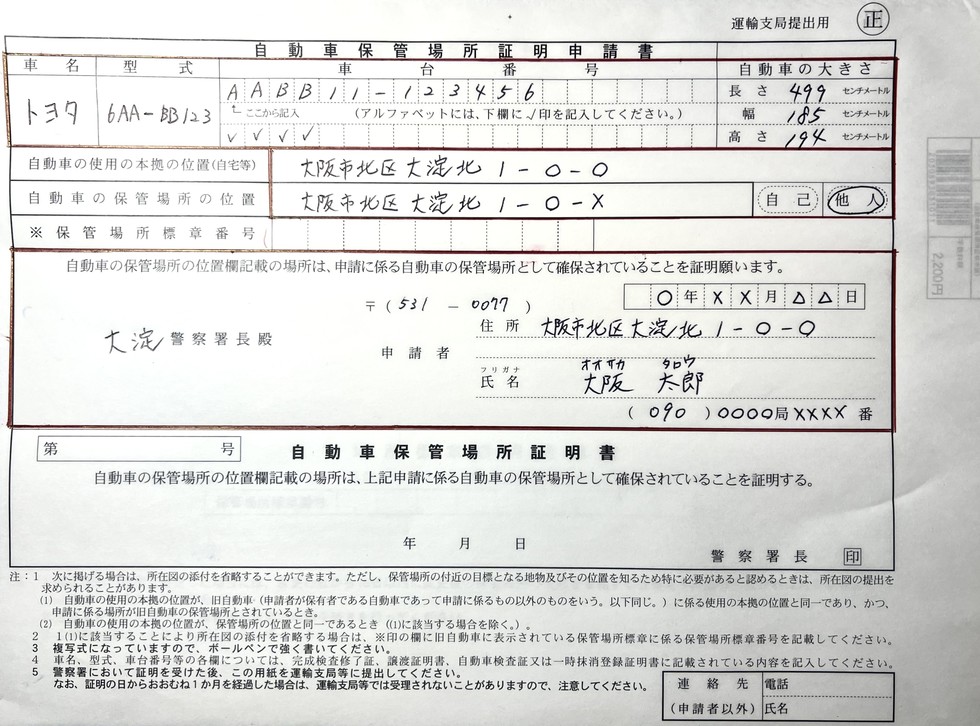 運輸支局提出用 正
自動車保管場所証明申請書
車名 型式 車台番号 自動車の大きさ
トヨタ 6AA-BB123 AABB11-123456 長さ 499 センチメートル
ここから記入 (アルファベットには、下欄に✓印を記入してください。) 幅 185 センチメートル
✓ ✓ ✓ ✓ 高さ 194 センチメートル
自動車の使用の本拠の位置(自宅等) 大阪市北区大淀北 1-0-0
自動車の保管場所の位置 大阪市北区大淀北 1-0-X 自己 他人
※保管場所標章番号
自動車の保管場所の位置欄記載の場所は、申請に係る自動車の保管場所として確保されていることを証明願います。
〒(531-0077) ○年XX月△△日
住所 大阪市北区大淀北 1-0-0
大淀警察署長殿
申請者
フリガナ オオサカ タロウ
氏名 大阪 太郎
(090)0000局XXXX番
第 号 自動車保管場所証明書
自動車の保管場所の位置欄記載の場所は、上記申請に係る自動車の保管場所として確保されていることを証明する。
年 月 日
警察署長 印
注:1 次に掲げる場合は、所在図の添付を省略することができます。ただし、保管場所の付近の目標となる地物及びその位置を知るため特に必要があると認めるときは、所在図の提出を
求められることがあります。
(1) 自動車の使用の本拠の位置が、旧自動車(申請者が保有者である自動車であって申請に係るもの以外のものをいう。以下同じ。)に係る使用の本拠の位置と同一であり、かつ、
申請に係る場所が旧自動車の保管場所とされているとき。
(2) 自動車の使用の本拠の位置が、保管場所の位置と同一であるとき((1)に該当する場合を除く。)。
2 1(1)に該当することにより所在図の添付を省略する場合は、※印の欄に旧自動車に表示されている保管場所標章に係る保管場所標章番号を記載してください。
3 複写式になっていますので、ボールペンで強く書いてください。
4 車名、型式、車台番号等の各欄については、完成検査修了証、譲渡証明書、自動車検査証又は一時抹消登録証明書に記載されている内容を記入してください。
5 警察署において証明を受けた後、この用紙を運輸支局等に提出してください。
なお、証明の日からおおむね1か月を経過した場合は、運輸支局等では受理されないことがありますので、注意してください。
連絡先 電話
(申請者以外) 氏名
2,200円